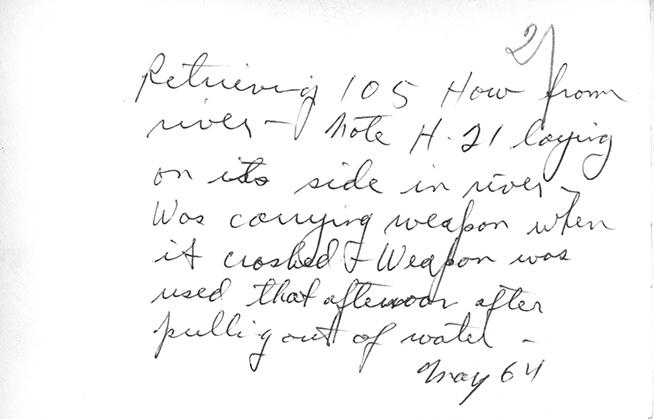 2
Retrieving 105 How from
river - Note H-21 laying
on its side in river -
Was carrying weapon when
it crashed & Weapon was
used that afternoon after
pullig out of water -
May 64